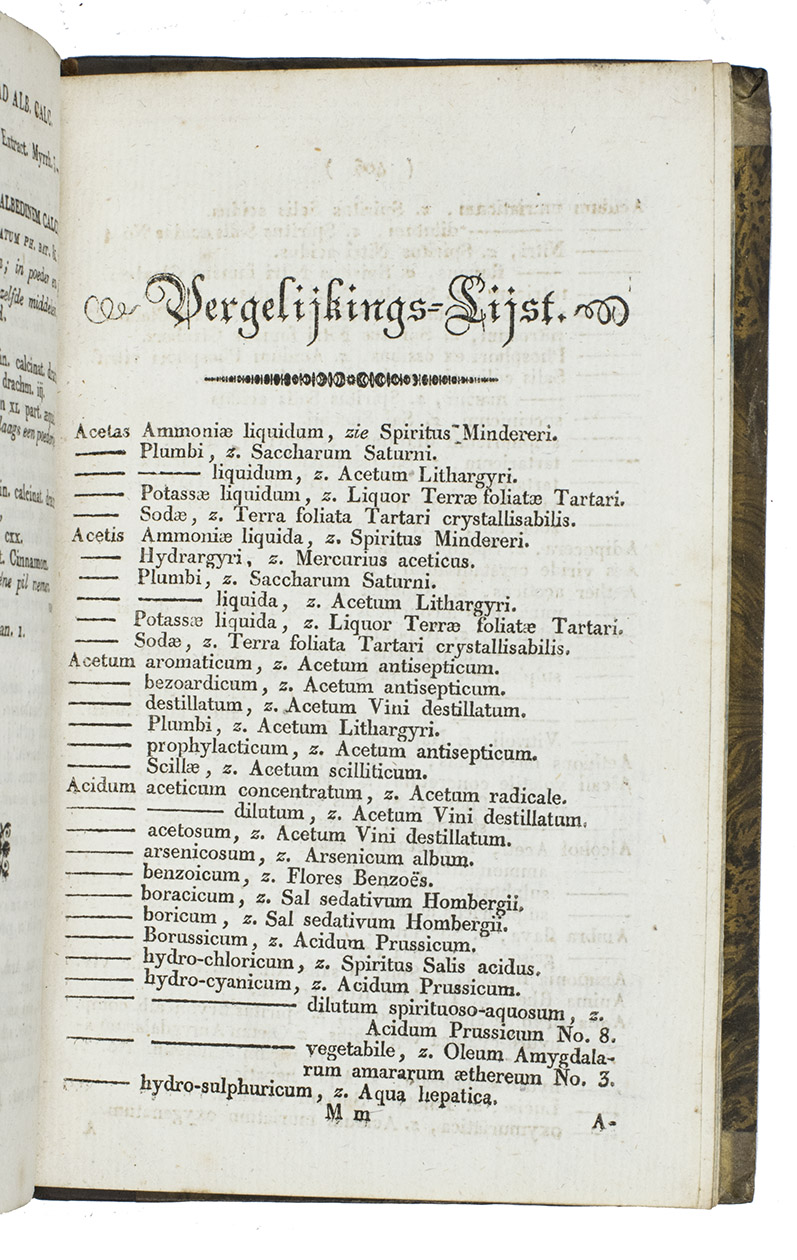 AD ALB. CALC.
Extract. Myrrh.
ALBEDINEM CALC
in poeder
zelfde middelen
in. calcinat.
drachm. iij.
XL part.
in. calcinat.
CXX.
Cinnamon.
pil neme.
an. 1.
Vergelijkings-Lijst.
Acetas Ammoniæ liquidum, zie Spiritus Mindereri.
—— Plumbi, z. Saccharum Saturni.
—— —— liquidum, z. Acetum Lithargyri.
—— Potassæ liquidum, z. Liquor Terræ foliatæ Tartari.
—— Sodæ, z. Terra foliata Tartari crystallisabilis.
Acetis Ammoniæ liquida, z. Spiritus Mindereri.
—— Hydrargyri, z. Mercurius aceticus.
—— Plumbi, z. Saccharum Saturni.
—— —— liquida, z. Acetum Lithargyri.
—— Potassæ liquida, z. Liquor Terræ foliatæ Tartari.
—— Sodæ, z. Terra foliata Tartari crystallisabilis.
Acetum aromaticum, z. Acetum antisepticum.
—— bezoardicum, z. Acetum antisepticum.
—— destillatum, z. Acetum Vini destillatum.
—— Plumbi, z. Acetum Lithargyri.
—— prophylacticum, z. Acetum antisepticum.
—— Scillæ, z. Acetum scilliticum.
Acidum aceticum concentratum, z. Acetum radicale.
—— —— dilutum, z. Acetum Vini destillatum.
—— acetosum, z. Acetum Vini destillatum.
—— arsenicosum, z. Arsenicum album.
—— benzoicum, z. Flores Benzoës.
—— boracicum, z. Sal sedativum Hombergii.
—— boricum, z. Sal sedativum Hombergii.
—— Borussicum, z. Acidum Prussicum.
—— hydro-chloricum, z. Spiritus Salis acidus.
—— hydro-cyanicum, z. Acidum Prussicum.
—— —— dilutum spirituoso-aquosum, z.
Acidum Prussicum No. 8.
—— —— vegetabile, z. Oleum Amygdala-
rum amararum æthereum No. 3.
—— hydro-sulphuricum, z. Aqua hepatica.
M m
A-